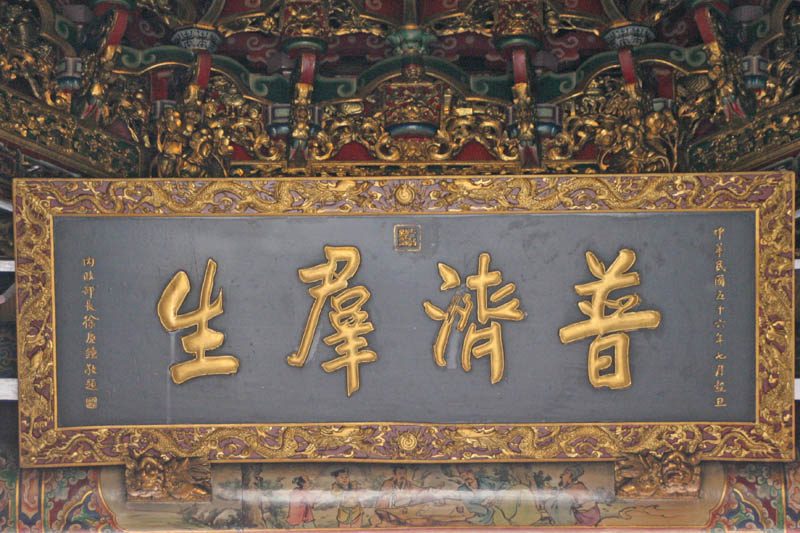 中華民國五十六年七月穀旦
普濟群生
內政部長徐慶鐘敬題